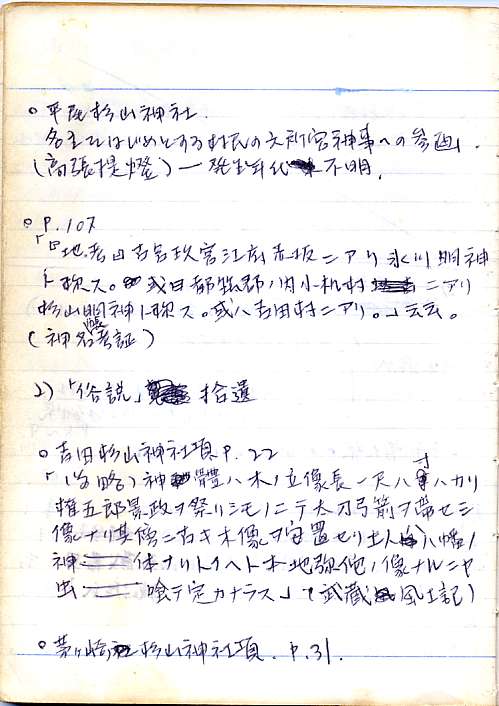 ○平尾杉山神社.
名主をはじめとする村民の大行宮神事への参画」.
(高張提燈)一発生年代不明.
○P.107
「地老曰古宮政宮江府赤坂ニアリ氷川明神
ト称ス。或曰都筑郡ノ内小机村ニアリ
杉山明神ト称ス。或ハ吉田村ニアリ。」云云。
(神名帳考証)
2)「俗説」拾遺
○吉田杉山神社項P.22
「(省略)神體ハ木ノ立像長一尺八寸ハカリ
権五郎景政ヲ祭リシモノニテ太刀弓箭ヲ帯セシ
像ナリ其傍ニ古キ木像ヲ安置セリ土人ハ八幡ノ
神体ナリトイヘト本地弥陀ノ像ナルニヤ
虫喰テ定カナラス」(武蔵風土記)
○茅ヶ崎杉山神社項.P.31.